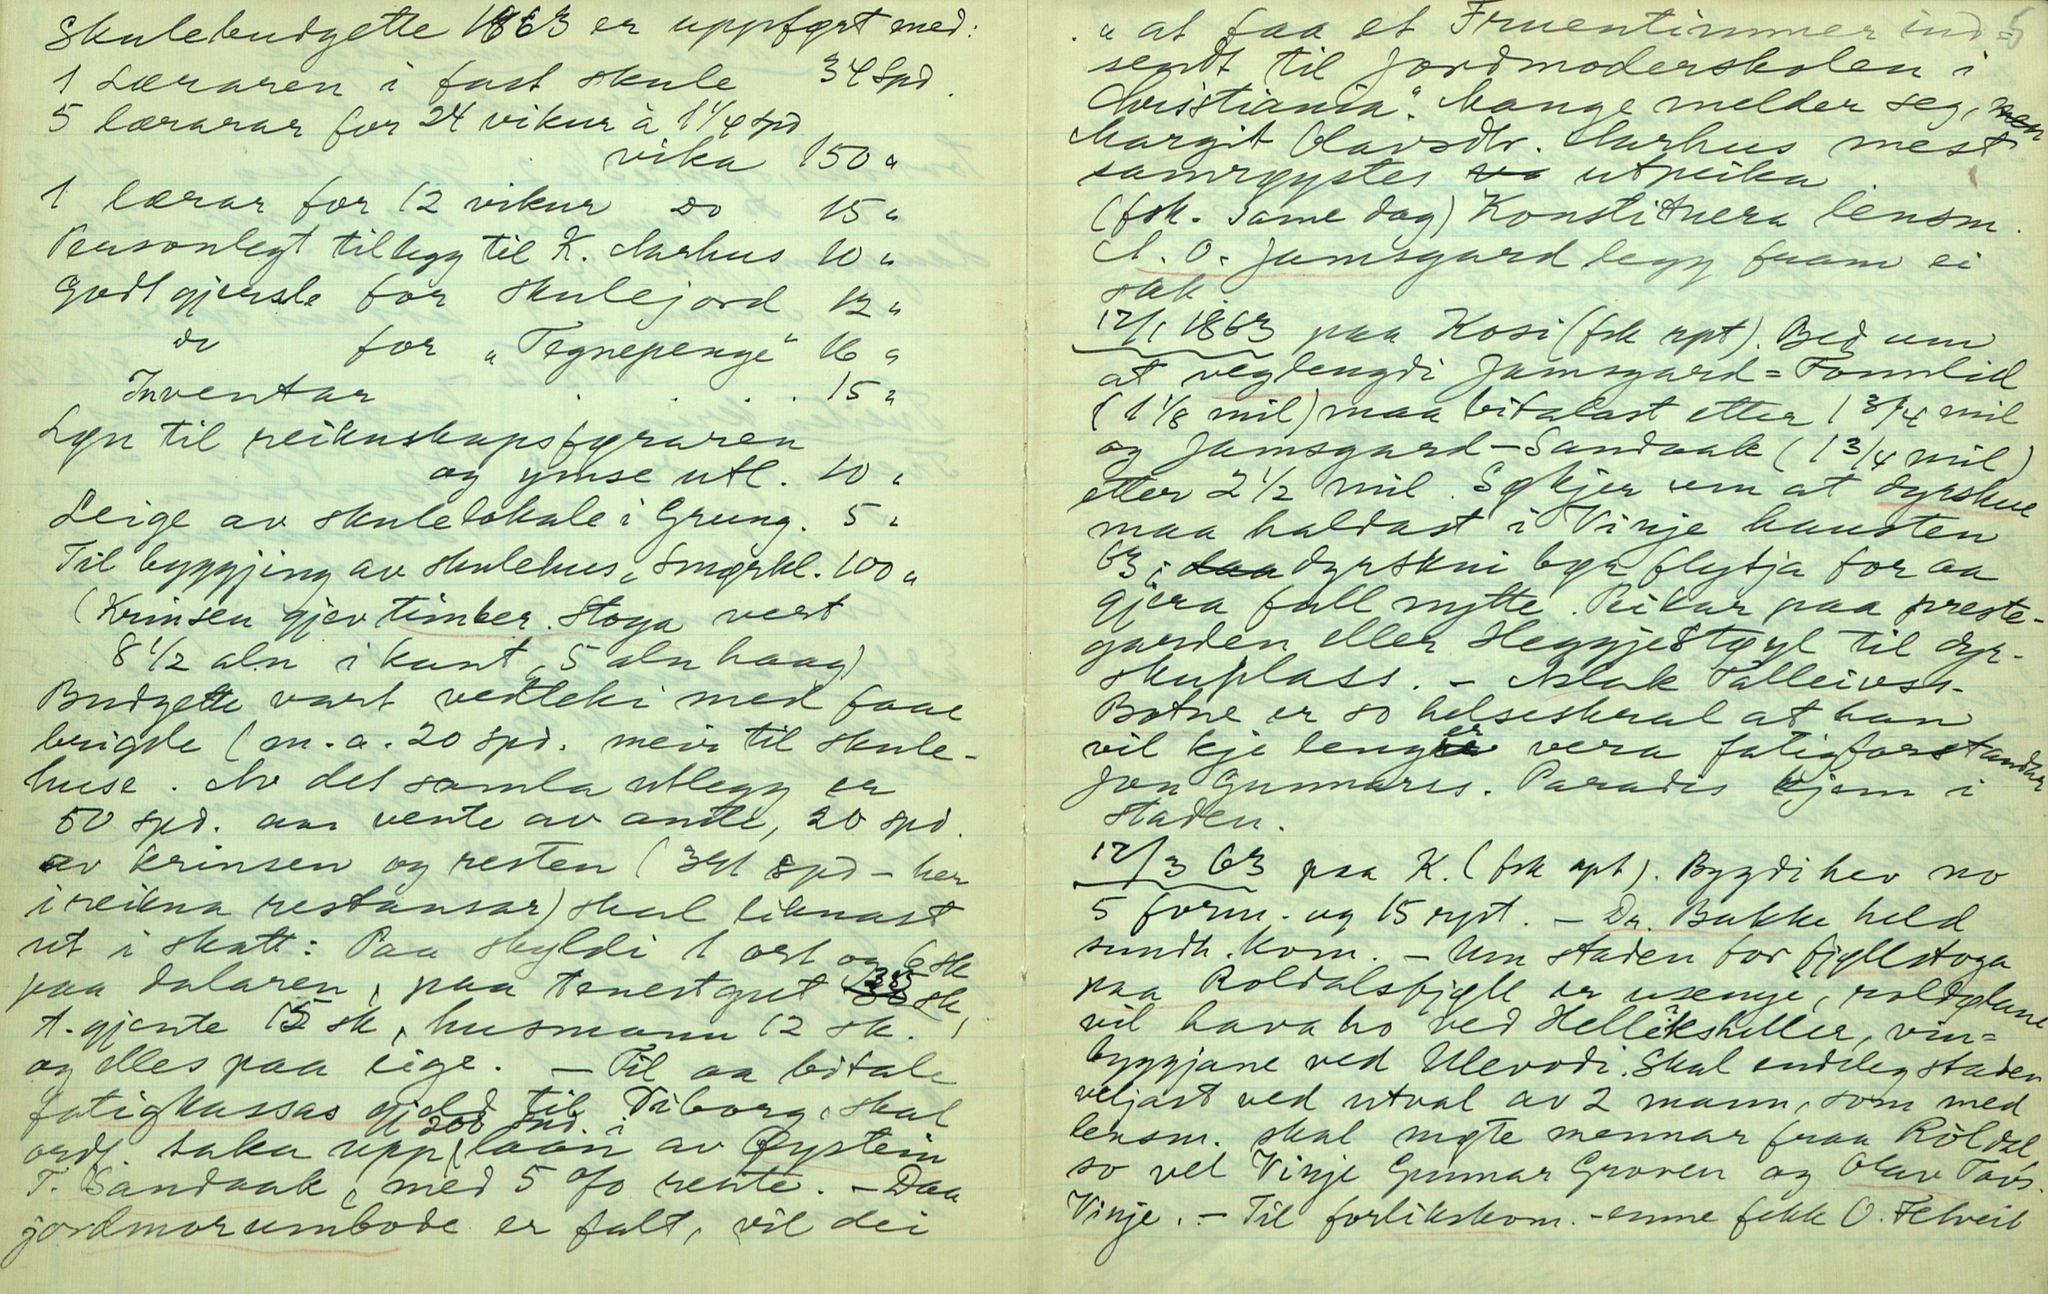 Skulebudgette 1863 er uppført med:
1 Læraren i fast skule 34 Spd.
5 lærarar for 24 vikur à 1 1/4 spd
vika 150 "
1 lærar for 12 vikur do 15 "
Personlegt tillegg til K. Aarhus 10 "
Godtgjersle for skulejord 12 "
do for "Tegnepenge" 16 "
Inventar . . . . 15 "
Løn til reiknskapsføraren
og ymse utl. 10 "
Leige av skulelokale i Grung. 5 "
Til byggjing av skulehus, Smørkl. 100 "
(Krinsen gjev timber. Stoga vert
8 1/2 aln i kant, 5 aln haag)
Budgette vart vedteki med faae
brigde (m.a. 20 spd. meir til skule-
huse. Av det samla utlegg er
50 spd. aa vente av amte, 20 spd.
av krinsen og resten (391 spd - her
i reikna restansar) skal liknast
ut i skatt: Paa skyldi 1 ort og 6 sk
paa dalaren, paa tenestgut 35 sk,
t.gjente 15 sk, husmann 12 sk.,
og elles paa eige. - Til aa bitale
fatigkassas gjeld til Viborg, skal
ordf. taka upp 200 spd. i laan av Øystein
T. Sandvak, med 5 % rente. - Daa
jordmorumbode er falt, vil dei
" at faa et Fruentimmer ind= 5
sendt til Jordmoderskolen i
Christiania". Mange melder seg, men
Margit Olavsdtr. Aarhus mest
samrøystes utpeika.
(fsk. same dag) Konstituera lensm.
A. O. Jamsgard legg fram ei
sak.
12/1 1863 paa Kosi (fsk rpt). Bed um
at veglengdi Jamsgard = Fonnlid
(1 1/8 mil) maa bitalast etter 1 3/4 mil
og Jamsgard - Sandvak (1 3/4 mil)
etter 2 1/2 mil. Søkjer um at dyrskue
maa haldast i Vinje hausten
63; dyrskui bør flytja for aa
gjera full nytte. Peikar paa preste-
garden eller Heggjestøyl til dyr-
skuplass. - Aslak Talleivss.
Botne er so helseskral at han
vil kje lenger vera fatigforstandar
Jon Gunnars. Paradis kjem i
staden.
12/3 63 paa K. (fsk rpt). Bygdi hev no
5 form. og 15 rpt. - Dr. Bakke held
sundh. kom. - Um staden for fjellstoga
paa Roldalsfjell er usemje, roldølane
vil hava ho ved Hellikshiller, vin=
byggjane ved Ulevodi. Skal endeleg staden
veljast ved utval av 2 mann, som med
lensm. skal møte mennar fraa Röldal
so vel Vinje Gunnar Groven og Olav Tovs.
Vinje. - Til forlikskom.-emne fekk O. Felveit